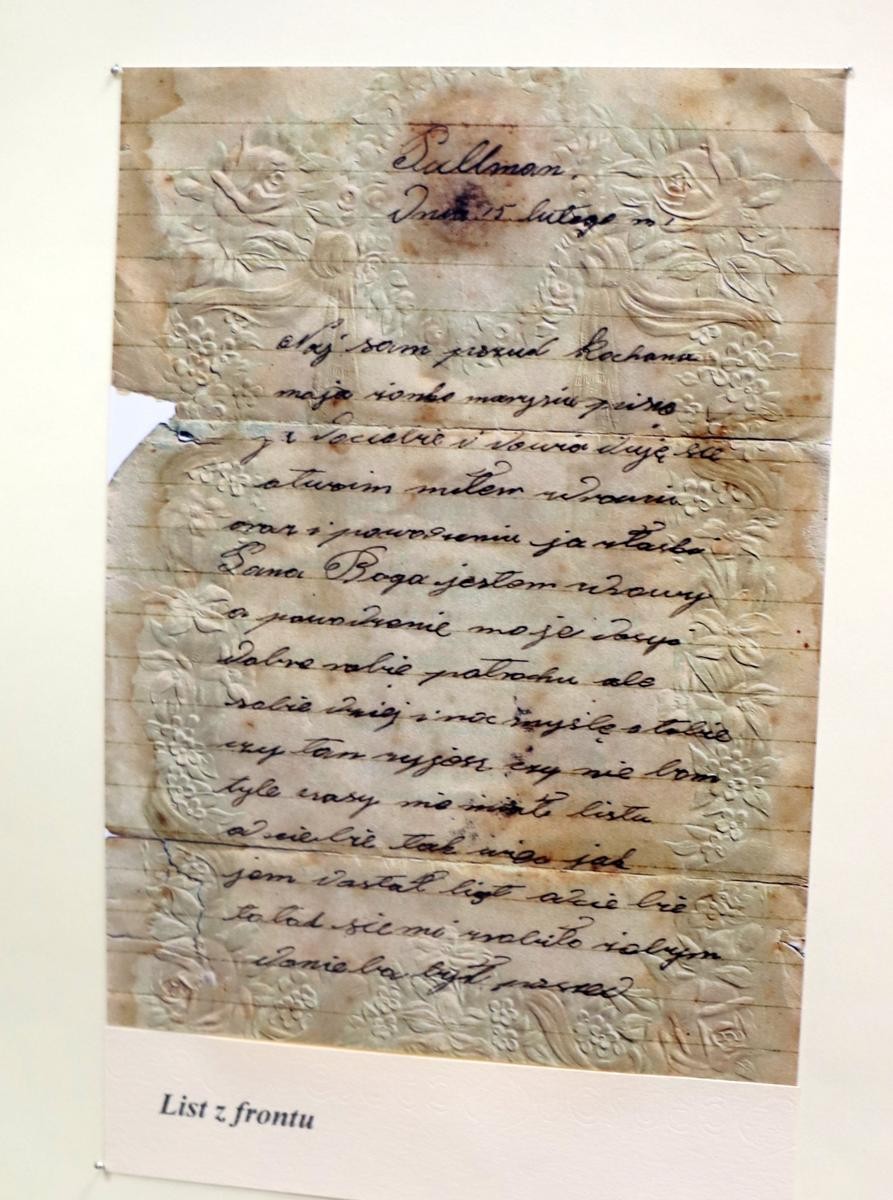 Pullman.
Dnia 15 lutego
Naj sam przud kochana
moja zonko marysiu pisze
do ciebie i dowia duję sie
o twoim miłem zdrowiu
oraz i powodzeniu ja
Pana Boga jestem zdrowy
a powodzenie moje dosyć
dobre robie potrochu ale
robie dziej i noc myślę o tobie
czy tam zyjesz czy nie bom
tyle czasy nie miał listu
od ciebie tak wiec jak
jem dostał list od cie bie
to tod sie mi zrobiło zobym
do nieba był poszed
List z frontu